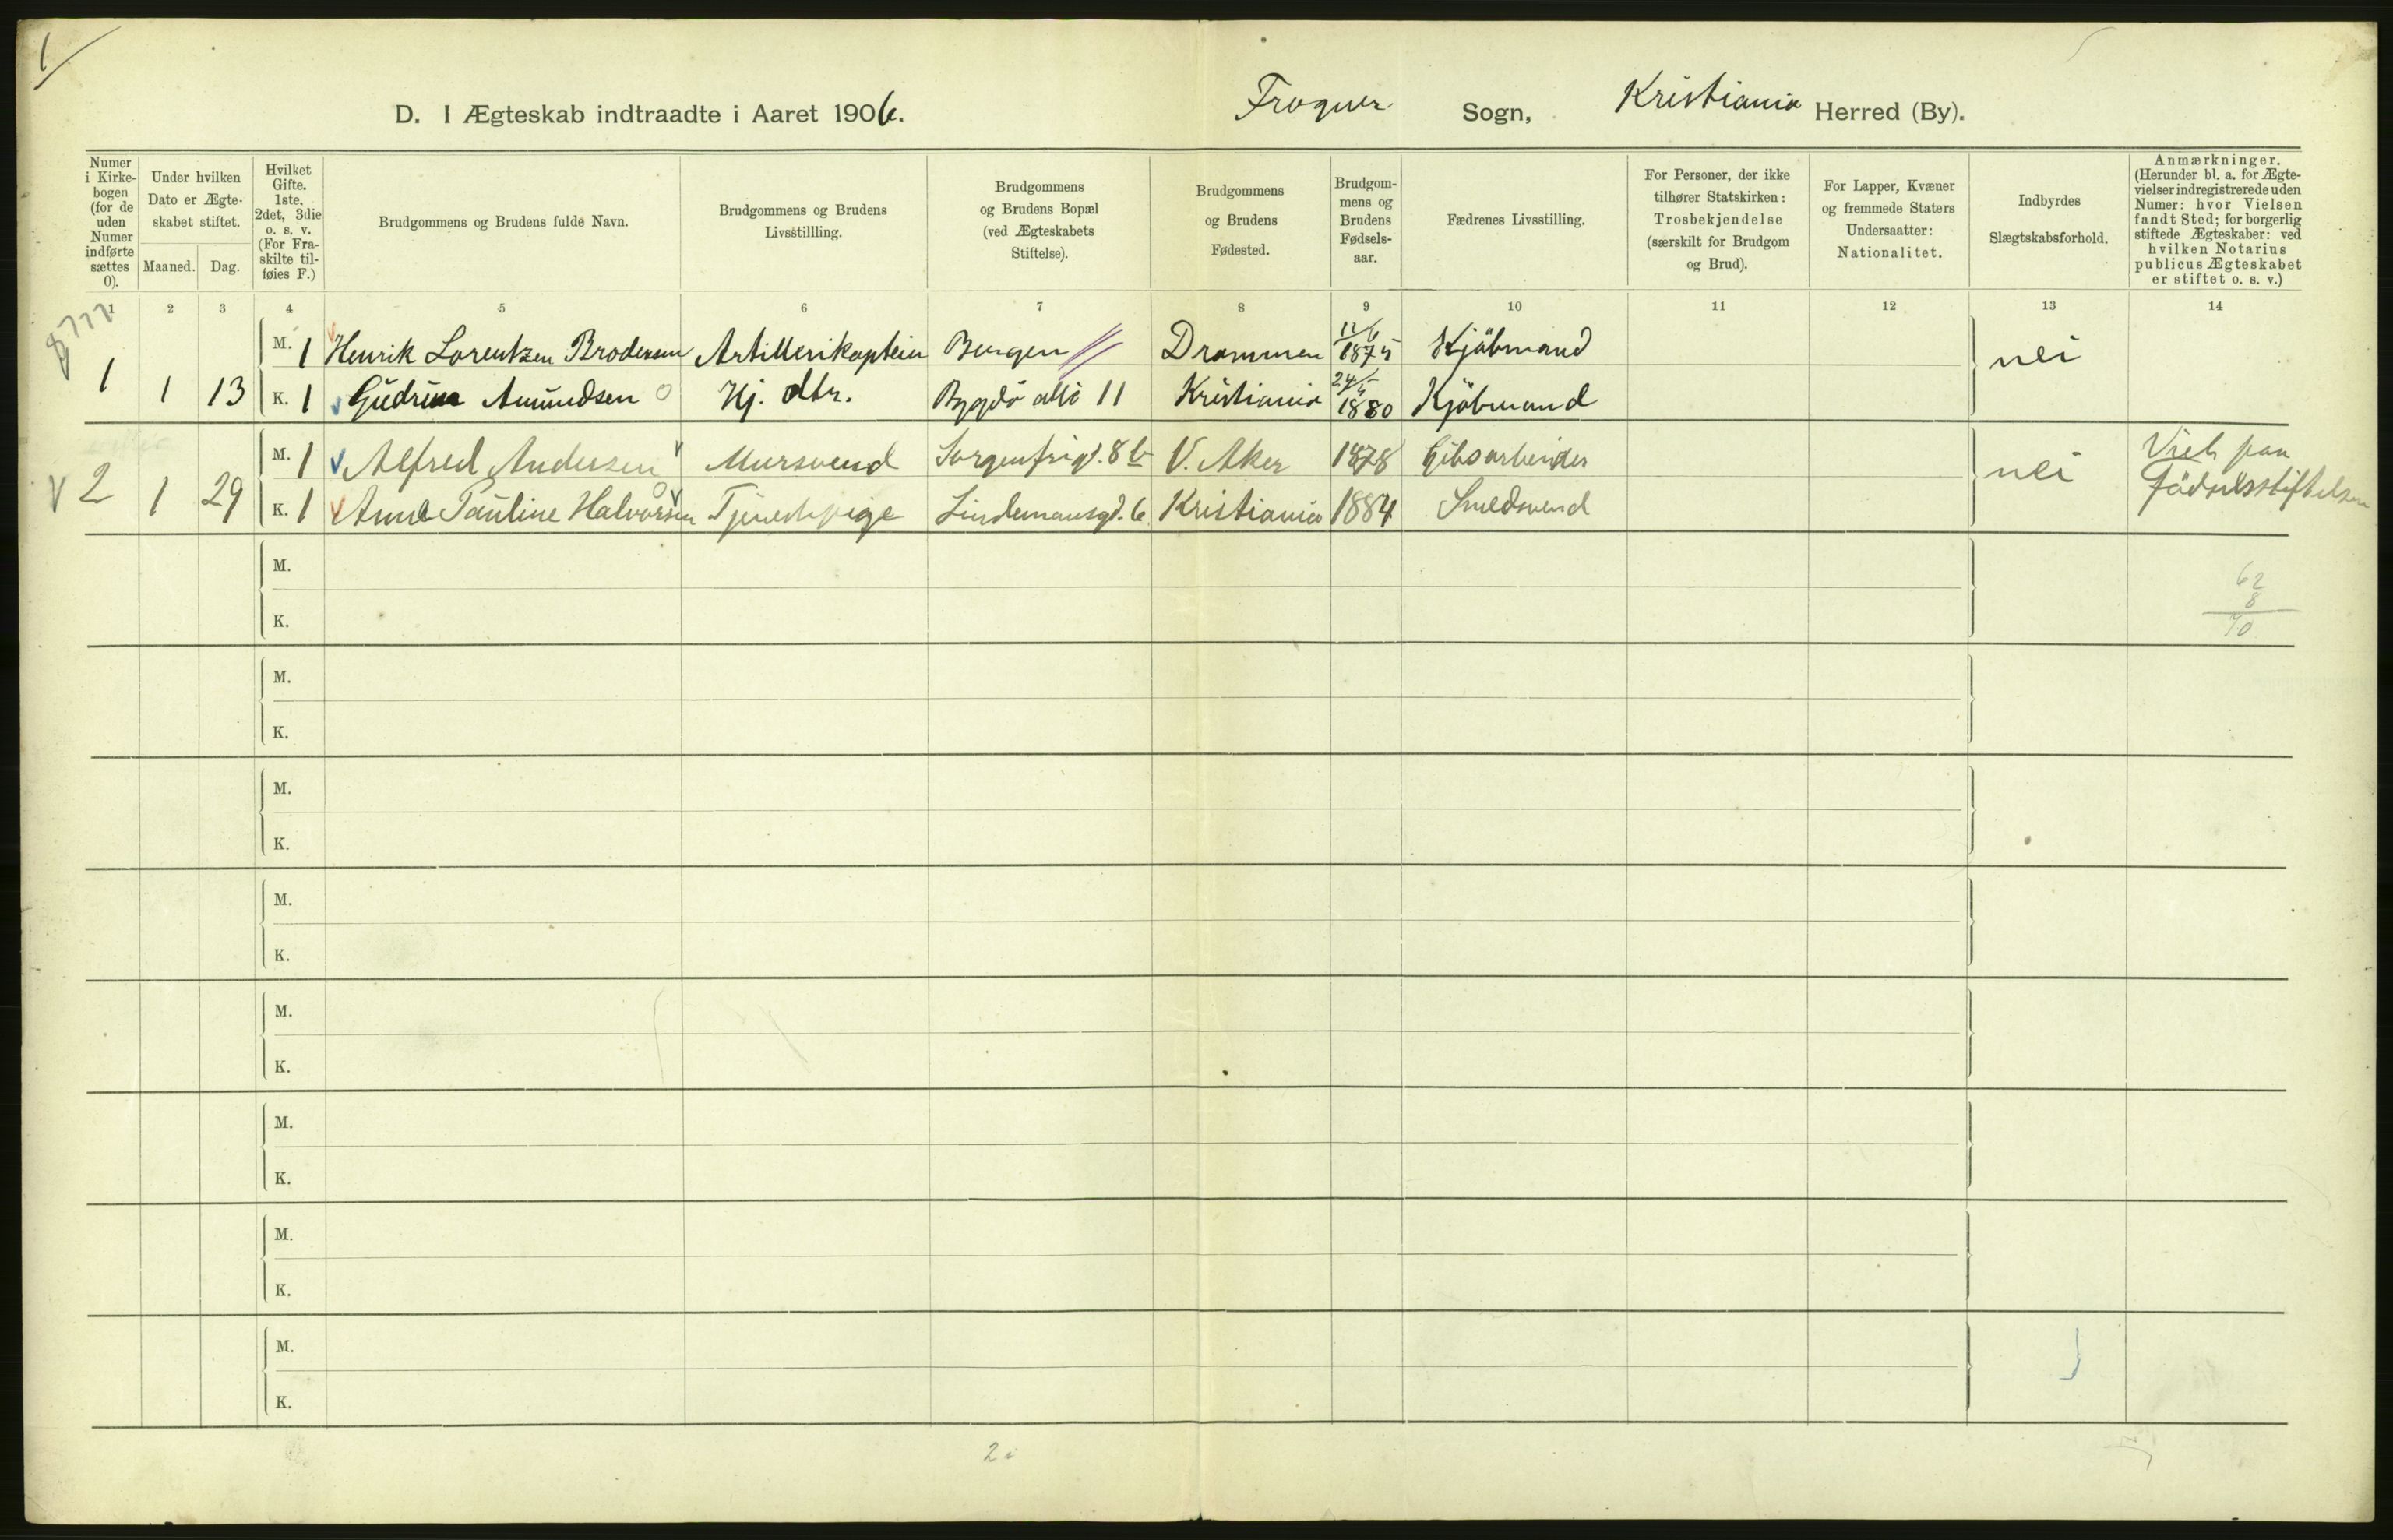 1
D. I Ægteskab indtraadte i Aaret 1906. Frogner Sogn, Kristiania Herred (By).
Numer i Kirke-bogen (for de uden Numer indførte sættes 0).
Under hvilken Dato er Ægte-skabet stiftet.
Maaned. Dag.
Hvilket Gifte. 1ste. 2det, 3die o. s. v. (For Fra-skilte til-føies F.)
Brudgommens og Brudens fulde Navn.
Brudgommens og Brudens Livsstillling.
Brudgommens og Brudens Bopæl (ved Ægteskabets Stiftelse).
Brudgommens og Brudens Fødested.
Brudgom-mens og Brudens Fødsels-aar.
Fædrenes Livsstilling.
For Personer, der ikke tilhører Statskirken: Trosbekjendelse (særskilt for Brudgom og Brud).
For Lapper, Kvæner og fremmede Staters Undersaatter: Nationalitet.
Indbyrdes Slægtskabsforhold.
Anmærkninger. (Herunder bl. a. for Ægte-vielser indregistrerede uden Numer: hvor Vielsen fandt Sted; for borgerlig stiftede Ægteskaber: ved hvilken Notarius publicus Ægteskabet er stiftet o. s. v.)
1 2 3 4 5 6 7 8 9 10 11 12 13 14
M. 1 Henrik Lorentzen Brodersen Artillerikaptein Bergen Drammen 11/6 1875 Kjöbmand nei
1 1 13 K. 1 Gudrun Amundsen Hj. dtr. Bygdö allé 11 Kristiania 24/5 1880 Kjöbmand
M. 1 Alfred Andersen Mursvend Sorgenfrigd. 8 b V. Aker 1878 Gibsarbeider nei Viet paa
2 1 29 K. 1 Anna Pauline Halvorsen Tjenestepige Lindemansgd. 6 Kristiania 1884 Smedsvend Födselsstiftelsen
M.
62
8
K.
70
M.
K.
M.
K.
M.
K.
M.
K.
M.
K.
M.
K.
M.
K.